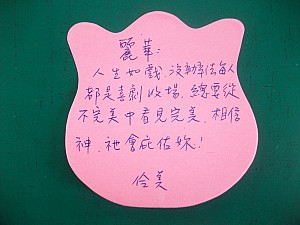 麗華：
人生如戲 沒辦法每人
都是喜劇收場、總要從
不完美中看見完美、相信
神、祂會庇佑妳！
合美